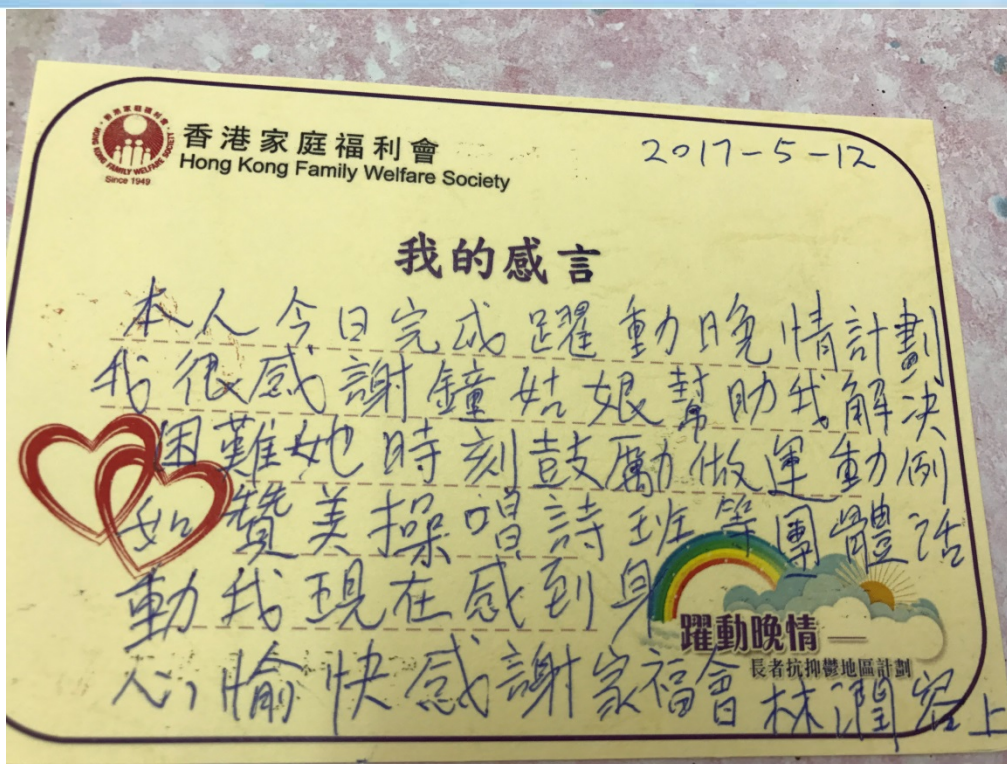 香港家庭福利會
Hong Kong Family Welfare Society
HONG KONG FAMILY WELFARE SOCIETY
Since 1949
2017-5-12
我的感言
本人今日完成躍動晚情計劃
我很感謝鐘姑娘幫助我解决
困難她時刻鼓勵做運動例
如贊美操唱詩班等團體活
動我現在感到身
心愉快感謝家福會林潤容上
躍動晚情
長者抗抑鬱地區計劃